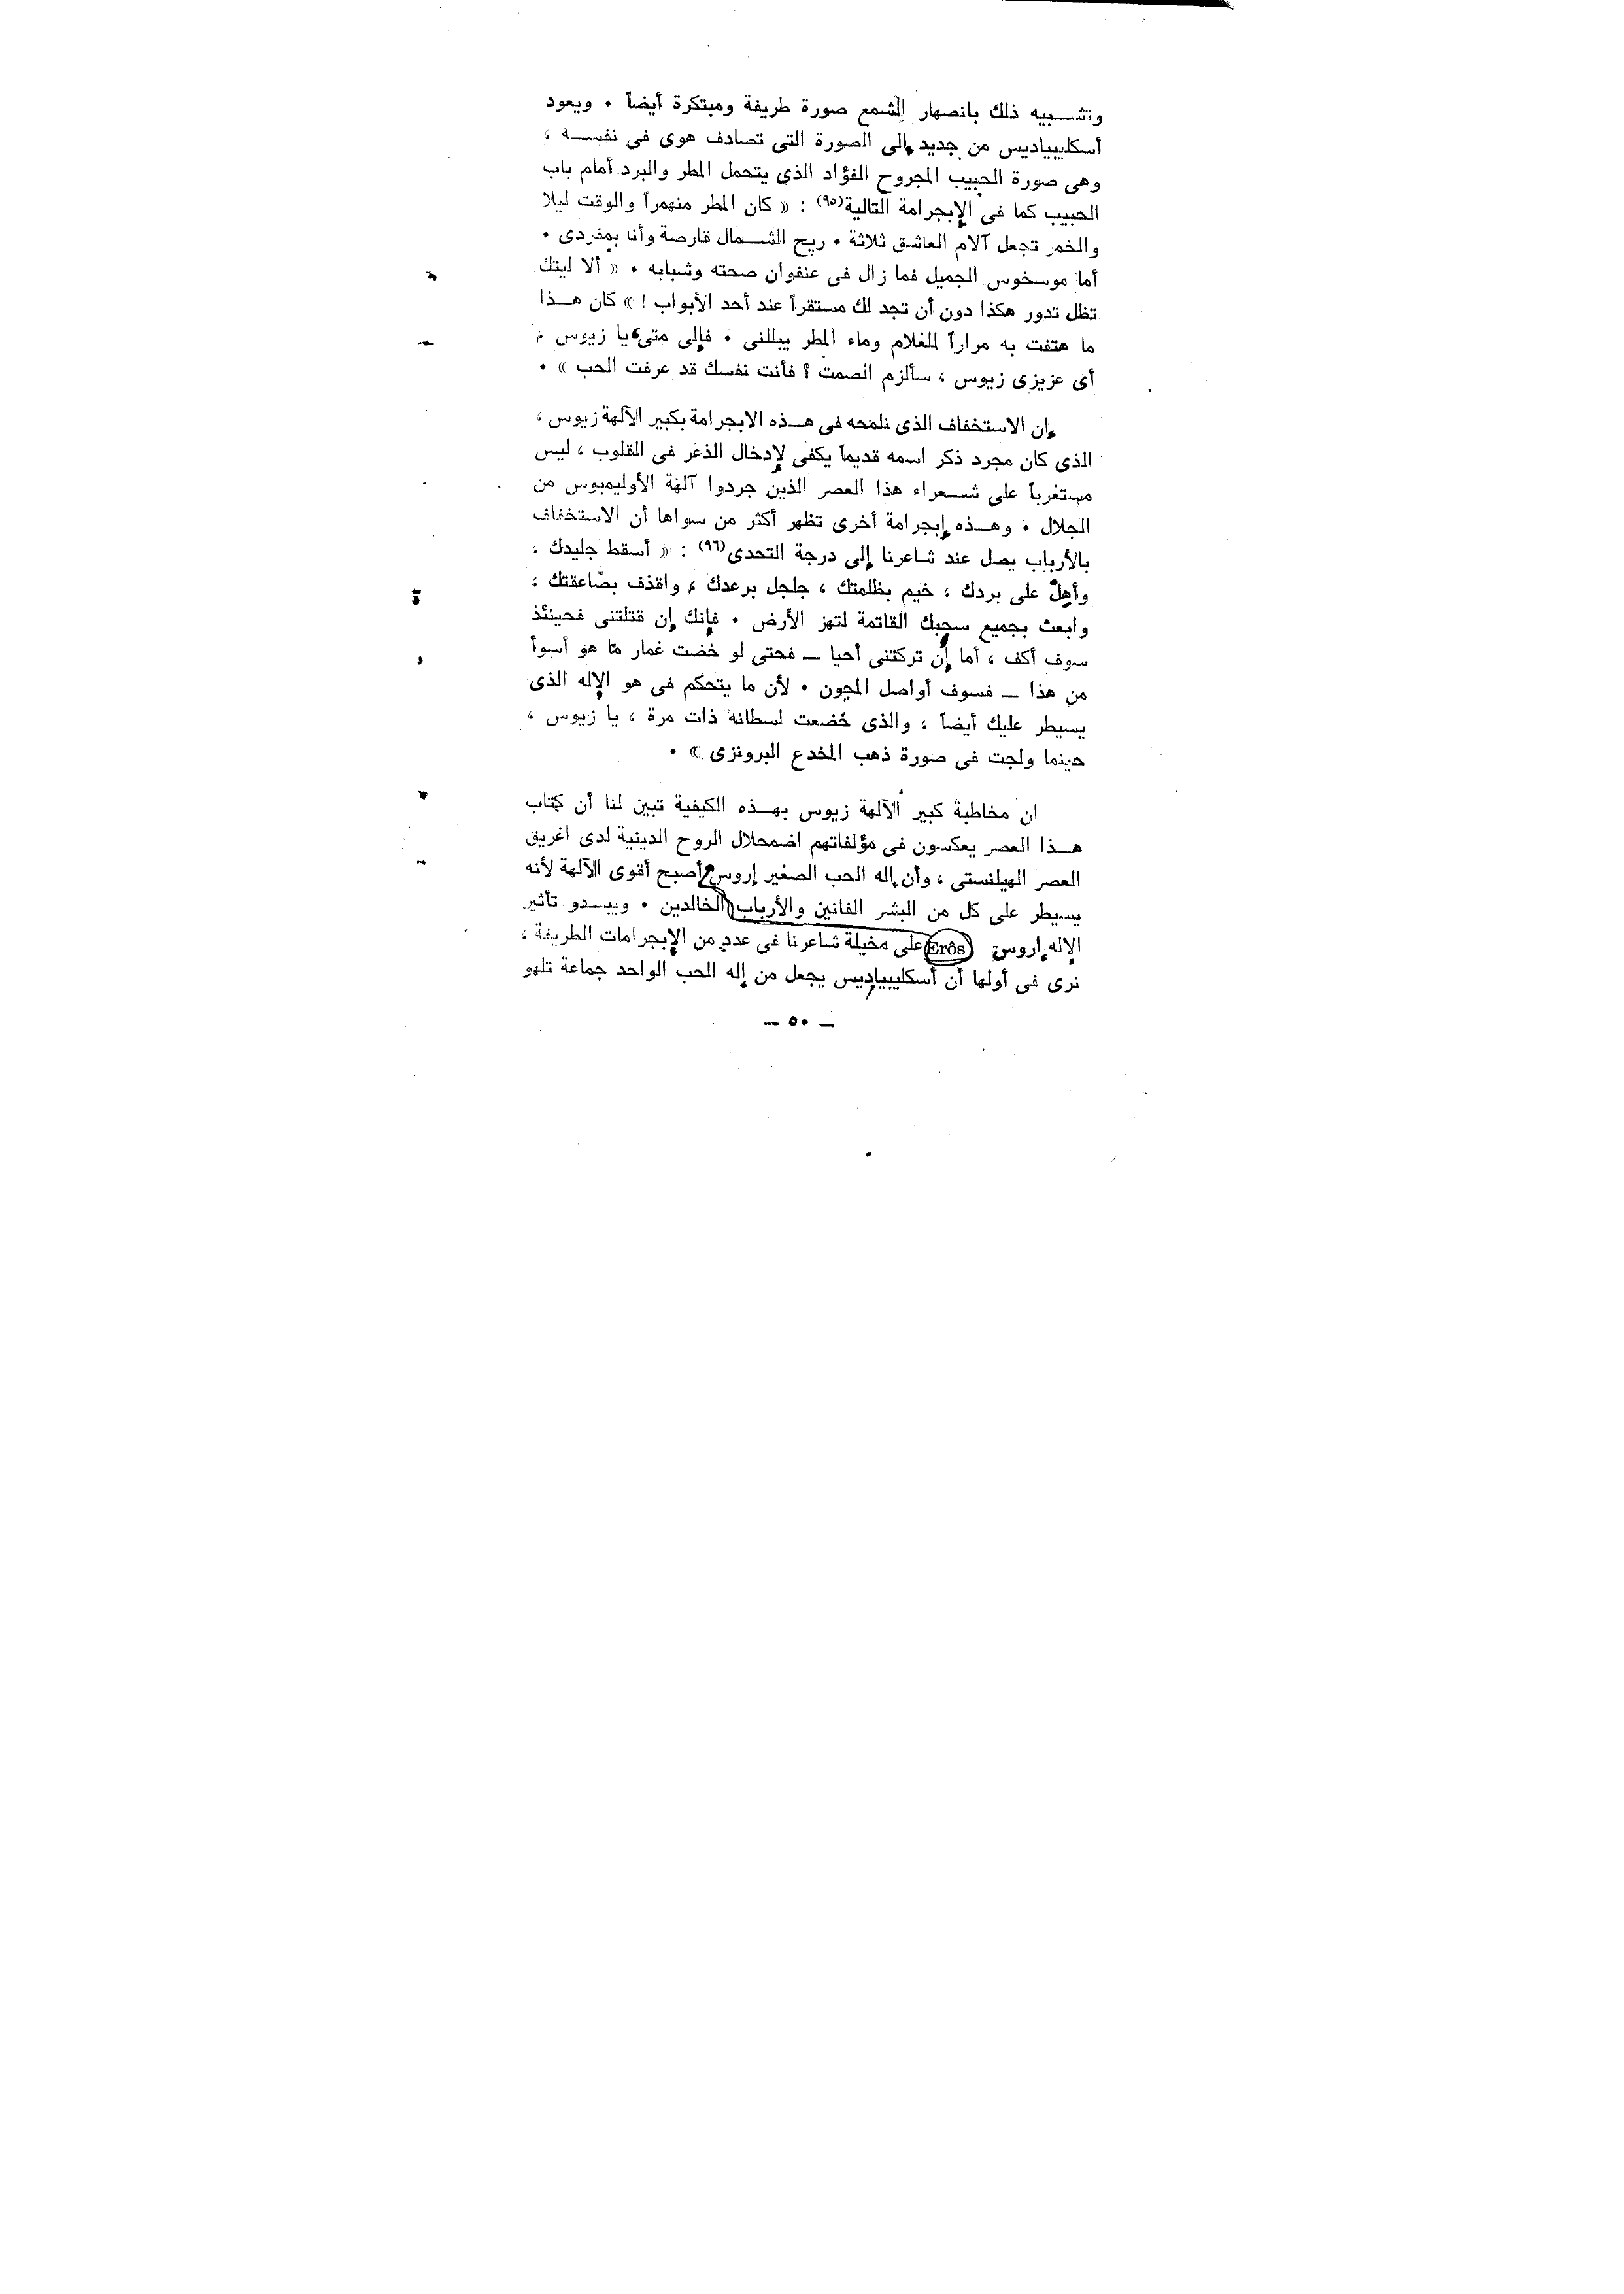 وتشبيه ذلك بانصهار الشمع صورة طريفة ومبتكرة أيضاً . ويعود
أسكليبياديس من جديد إلى الصورة التى تصادف هوى فى نفسه ،
وهى صورة الحبيب المجروح الفؤاد الذى يتحمل المطر والبرد أمام باب
الحبيب كما فى الإبجرامة التالية(٩٥) : « كان المطر منهمراً والوقت ليلا
والخمر تجعل آلام العاشق ثلاثة . ريح الشمال قارصة وأنا بمفردى .
أما موسخوس الجميل فما زال فى عنفوان صحته وشبابه . « ألا ليتك
تظل تدور هكذا دون أن تجد لك مستقراً عند أحد الأبواب ! » كان هذا
ما هتفت به مراراً للغلام وماء المطر يبللنى . فإلى متى ، يا زيوس ،
أى عزيزى زيوس ، سألزم الصمت ؟ فأنت نفسك قد عرفت الحب » .
إن الاستخفاف الذى نلمحه فى هذه الابجرامة بكبير الآلهة زيوس ،
الذى كان مجرد ذكر اسمه قديماً يكفى لإدخال الذعر فى القلوب ، ليس
مستغرباً على شعراء هذا العصر الذين جردوا آلهة الأوليمبوس من
الجلال . وهذه إبجرامة أخرى تظهر أكثر من سواها أن الاستخفاف
بالأرباب يصل عند شاعرنا إلى درجة التحدى(٩٦) : « أسقط جليدك ،
وأهِلّ على بردك ، خيم بظلمتك ، جلجل برعدك ، واقذف بصاعقتك ،
وابعث بجميع سحبك القاتمة لتهز الأرض . فإنك إن قتلتنى فحينئذ
سوف أكف ، أما إن تركتنى أحيا — فحتى لو خضت غمار ما هو أسوأ
من هذا — فسوف أواصل المجون . لأن ما يتحكم فى هو الإله الذى
يسيطر عليك أيضاً ، والذى خضعت لسطانه ذات مرة ، يا زيوس ،
حينما ولجت فى صورة ذهب المخدع البرونزى » .
ان مخاطبة كبير الآلهة زيوس بهذه الكيفية تبين لنا أن كتاب
هذا العصر يعكسون فى مؤلفاتهم اضمحلال الروح الدينية لدى اغريق
العصر الهيلنستى ، وأن إله الحب الصغير إروس أصبح أقوى الآلهة لأنه
يسيطر على كل من البشر الفانين والأرباب الخالدين . ويبدو تأثير
الإله إروس Erôs على مخيلة شاعرنا فى عدد من الإبجرامات الطريفة ،
نرى فى أولها أن أسكليبياديس يجعل من إله الحب الواحد جماعة تلهو
— ٥٠ —